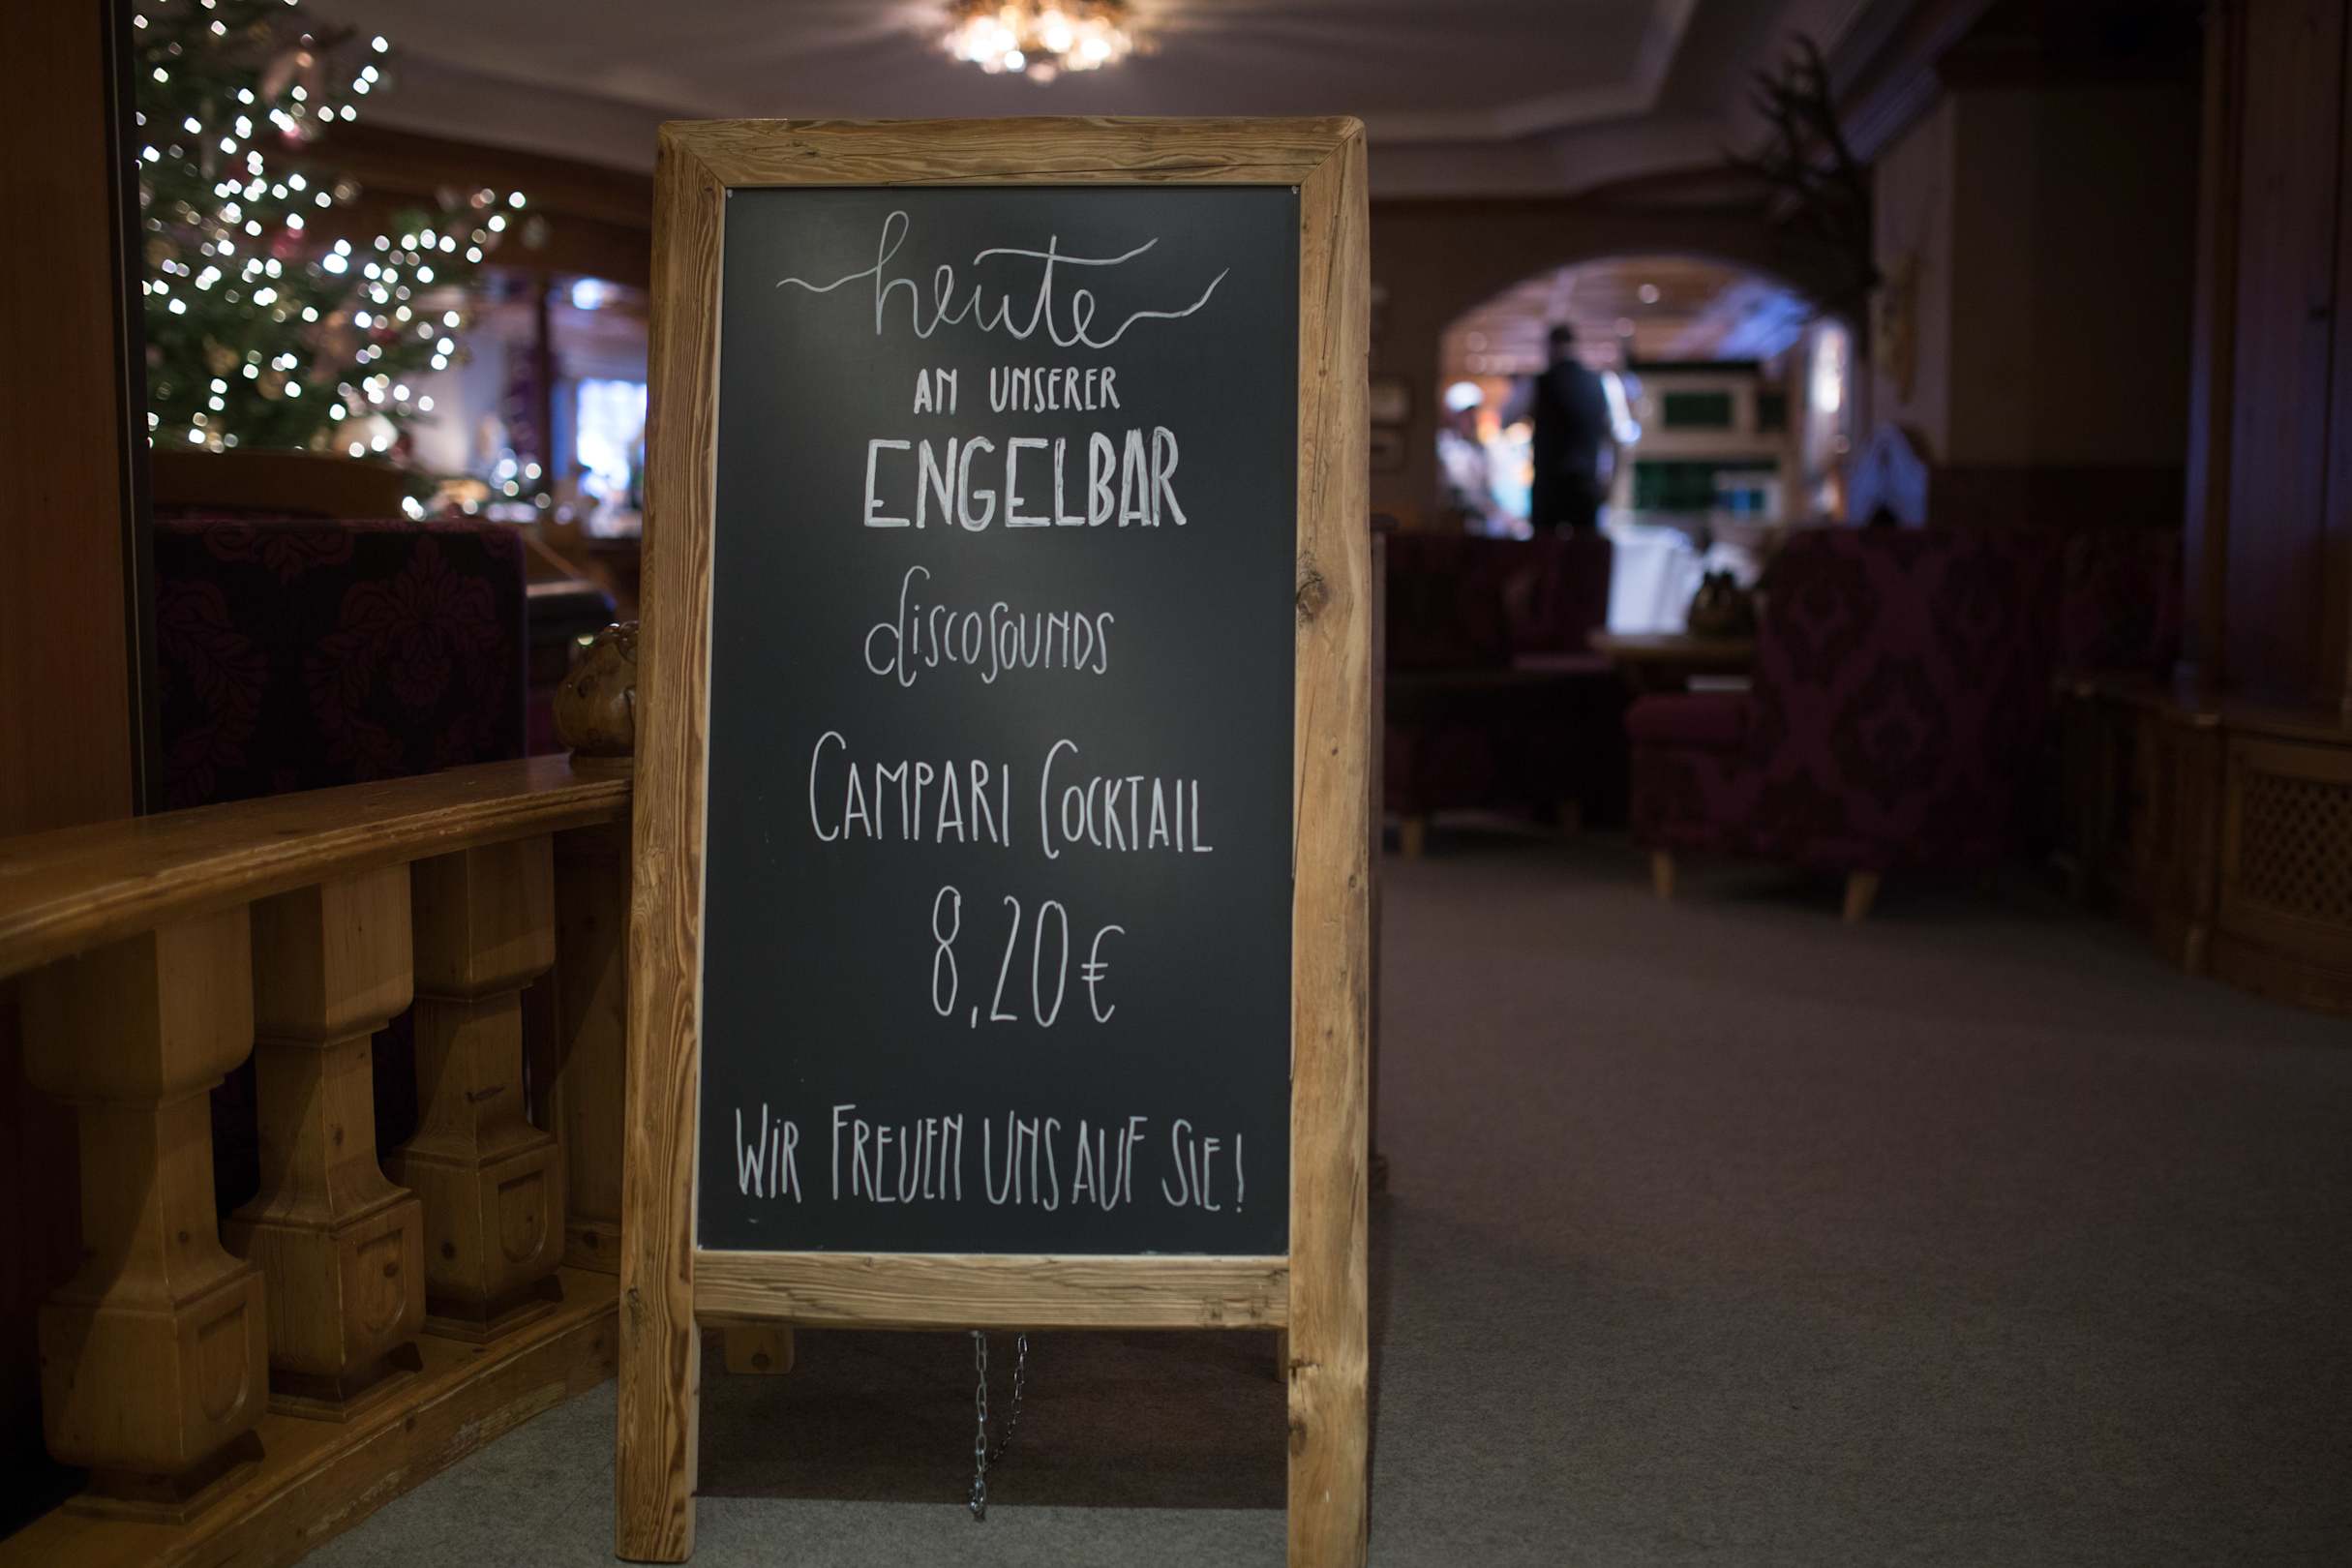 heute
AN UNSERER
ENGELBAR
discosounds
CAMPARI COCKTAIL
8,20€
WiR FREUEN UNS AUF SIE!